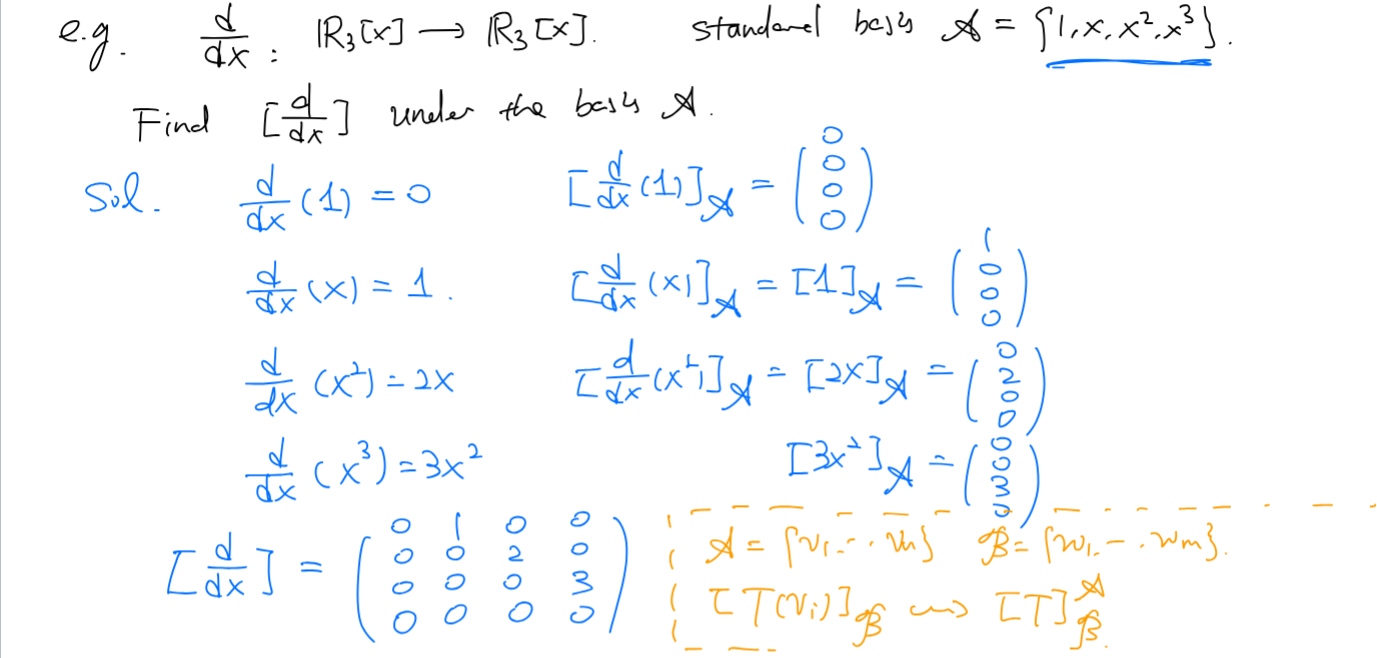 e.g. d/dx : ℝ₃[x] → ℝ₃[x]. standard basis 𝒜 = {1, x, x², x³}.
Find [d/dx] under the basis 𝒜.
Sol. d/dx (1) = 0 [d/dx (1)]_𝒜 = (0 0 0 0)
d/dx (x) = 1. [d/dx (x)]_𝒜 = [1]_𝒜 = (1 0 0 0)
d/dx (x²) = 2x [d/dx (x²)]_𝒜 = [2x]_𝒜 = (0 2 0 0)
d/dx (x³) = 3x² [3x²]_𝒜 = (0 0 3 0)
[d/dx] = (0 1 0 0
0 0 2 0
0 0 0 3
0 0 0 0)
𝒜 = {v₁ ... vₙ} ℬ = {w₁ ... wₘ}.
[T(vᵢ)]_ℬ ⇝ [T]^𝒜_ℬ.